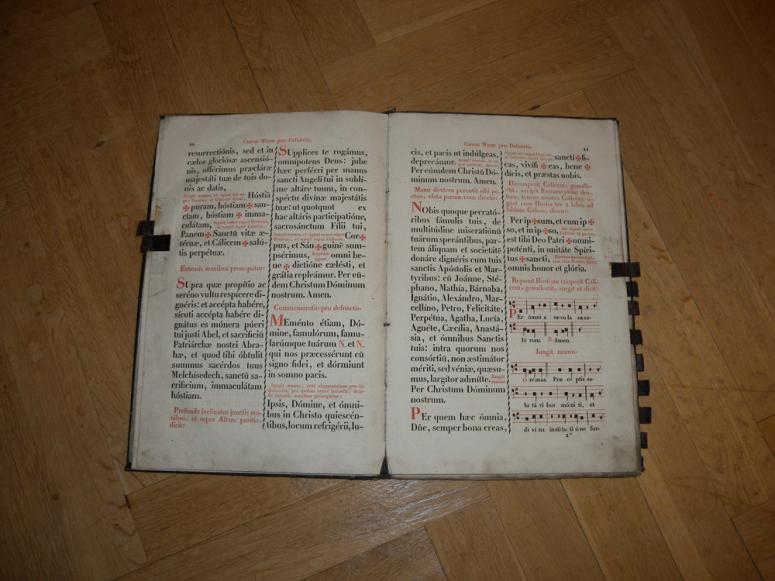 20
Canon Missæ pro Defunctis.
resurrectiónis, sed et in
cælos gloriósæ ascensió-
nis, offérimus præcláræ
majestáti tuæ de tuis do-
nis ac datis,
Hóstiã
✠ puram, hóstiam ✠ san-
ctam, hóstiam ✠ imma-
culátam,
Panem ✠ Sanctũ vitæ æ-
térnæ, et Cálicem ✠ salú-
tis perpétuæ.
Extensis manibus prosequitur:
Supra quæ propítio ac
seréno vultu respícere di-
gnéris: et accépta habére,
sícuti accépta habére di-
gnátus es múnera púeri
tui justi Abel, et sacrifíciũ
Patriárchæ nostri Abra-
hæ, et quod tibi óbtulit
summus sacérdos tuus
Melchísedech, sanctũ sa-
crifícium, immaculátam
hóstiam.
Profunde inclinatus junctis ma-
nibus, et super Altare positis
dicit:
Supplices te rogámus,
omnípotens Deus: jube
hæc perférri per manus
sancti Angeli tui in subli-
me altáre tuum, in con-
spéctu divínæ majestátis
tuæ: ut quotquot ex
hac altáris participatióne,
sacrosánctum Fílii tui,
Cor ✠
pus, et Sán ✠ guinẽ sum-
psérimus,
omni be-
ne ✠ dictióne cælésti, et
grátia repleámur. Per eũ-
dem Christum Dóminum
nostrum. Amen.
Commemoratio pro defunctis.
Meménto étiam, Dó-
mine, famulórum, famu-
larúmque tuárum N. et N.
qui nos præcessérunt cũ
signo fídei, et dórmiunt
in somno pacis.
Ipsis, Dómine, et ómni-
bus in Christo quiescén-
tibus, locum refrigérii, lu-
Canon Missæ pro Defunctis.
21
cis, et pacis ut indúlgeas,
deprecámur.
Per eúmdem Christũ Dó-
minum nostrum. Amen.
Manu dextera percutit sibi pe-
ctus, elata parum voce dicens:
Nobis quoque peccató-
ribus fámulis tuis, de
multitúdine miseratiónũ
tuárum sperántibus, par-
tem áliquam et societátẽ
donáre dignéris cum tuis
sanctis Apóstolis et Mar-
tyribus: cũ Joánne, Sté-
phano, Mathía, Bárnaba,
Ignátio, Alexándro, Mar-
cellíno, Petro, Felicitáte,
Perpétua, Agatha, Lucía,
Agnéte, Cæcília, Anastá-
sia, et ómnibus Sanctis
tuis: intra quorum nos
consórtiũ, non æstimátor
mériti, sed véniæ, quæsu-
mus, largítor admítte.
Per Christum Dóminum
nostrum.
Per quem hæc ómnia,
Dñe, semper bona creas,
sanctí ✠ fi-
cas, viví ✠ cas, bene ✠
dícis, et præstas nobis.
Per ip ✠ sum, et cum ip ✠
so, et in ip ✠ so,
est tibi Deo Patri ✠ omni-
poténti, in unitáte Spíri-
tus ✠ sancti,
omnis honor et glória.
Reponit Hostiam cooperit Cali-
cem, genuflectit, surgit et dicit:
Per ómni a sæ cu la sæcu-
ló rum. ℟. Amen.
Jungit manus.
O rémus. Præ cé ptis sa-
lu tá ri bus mó ni ti, et
di ví na institu ti ó ne for-